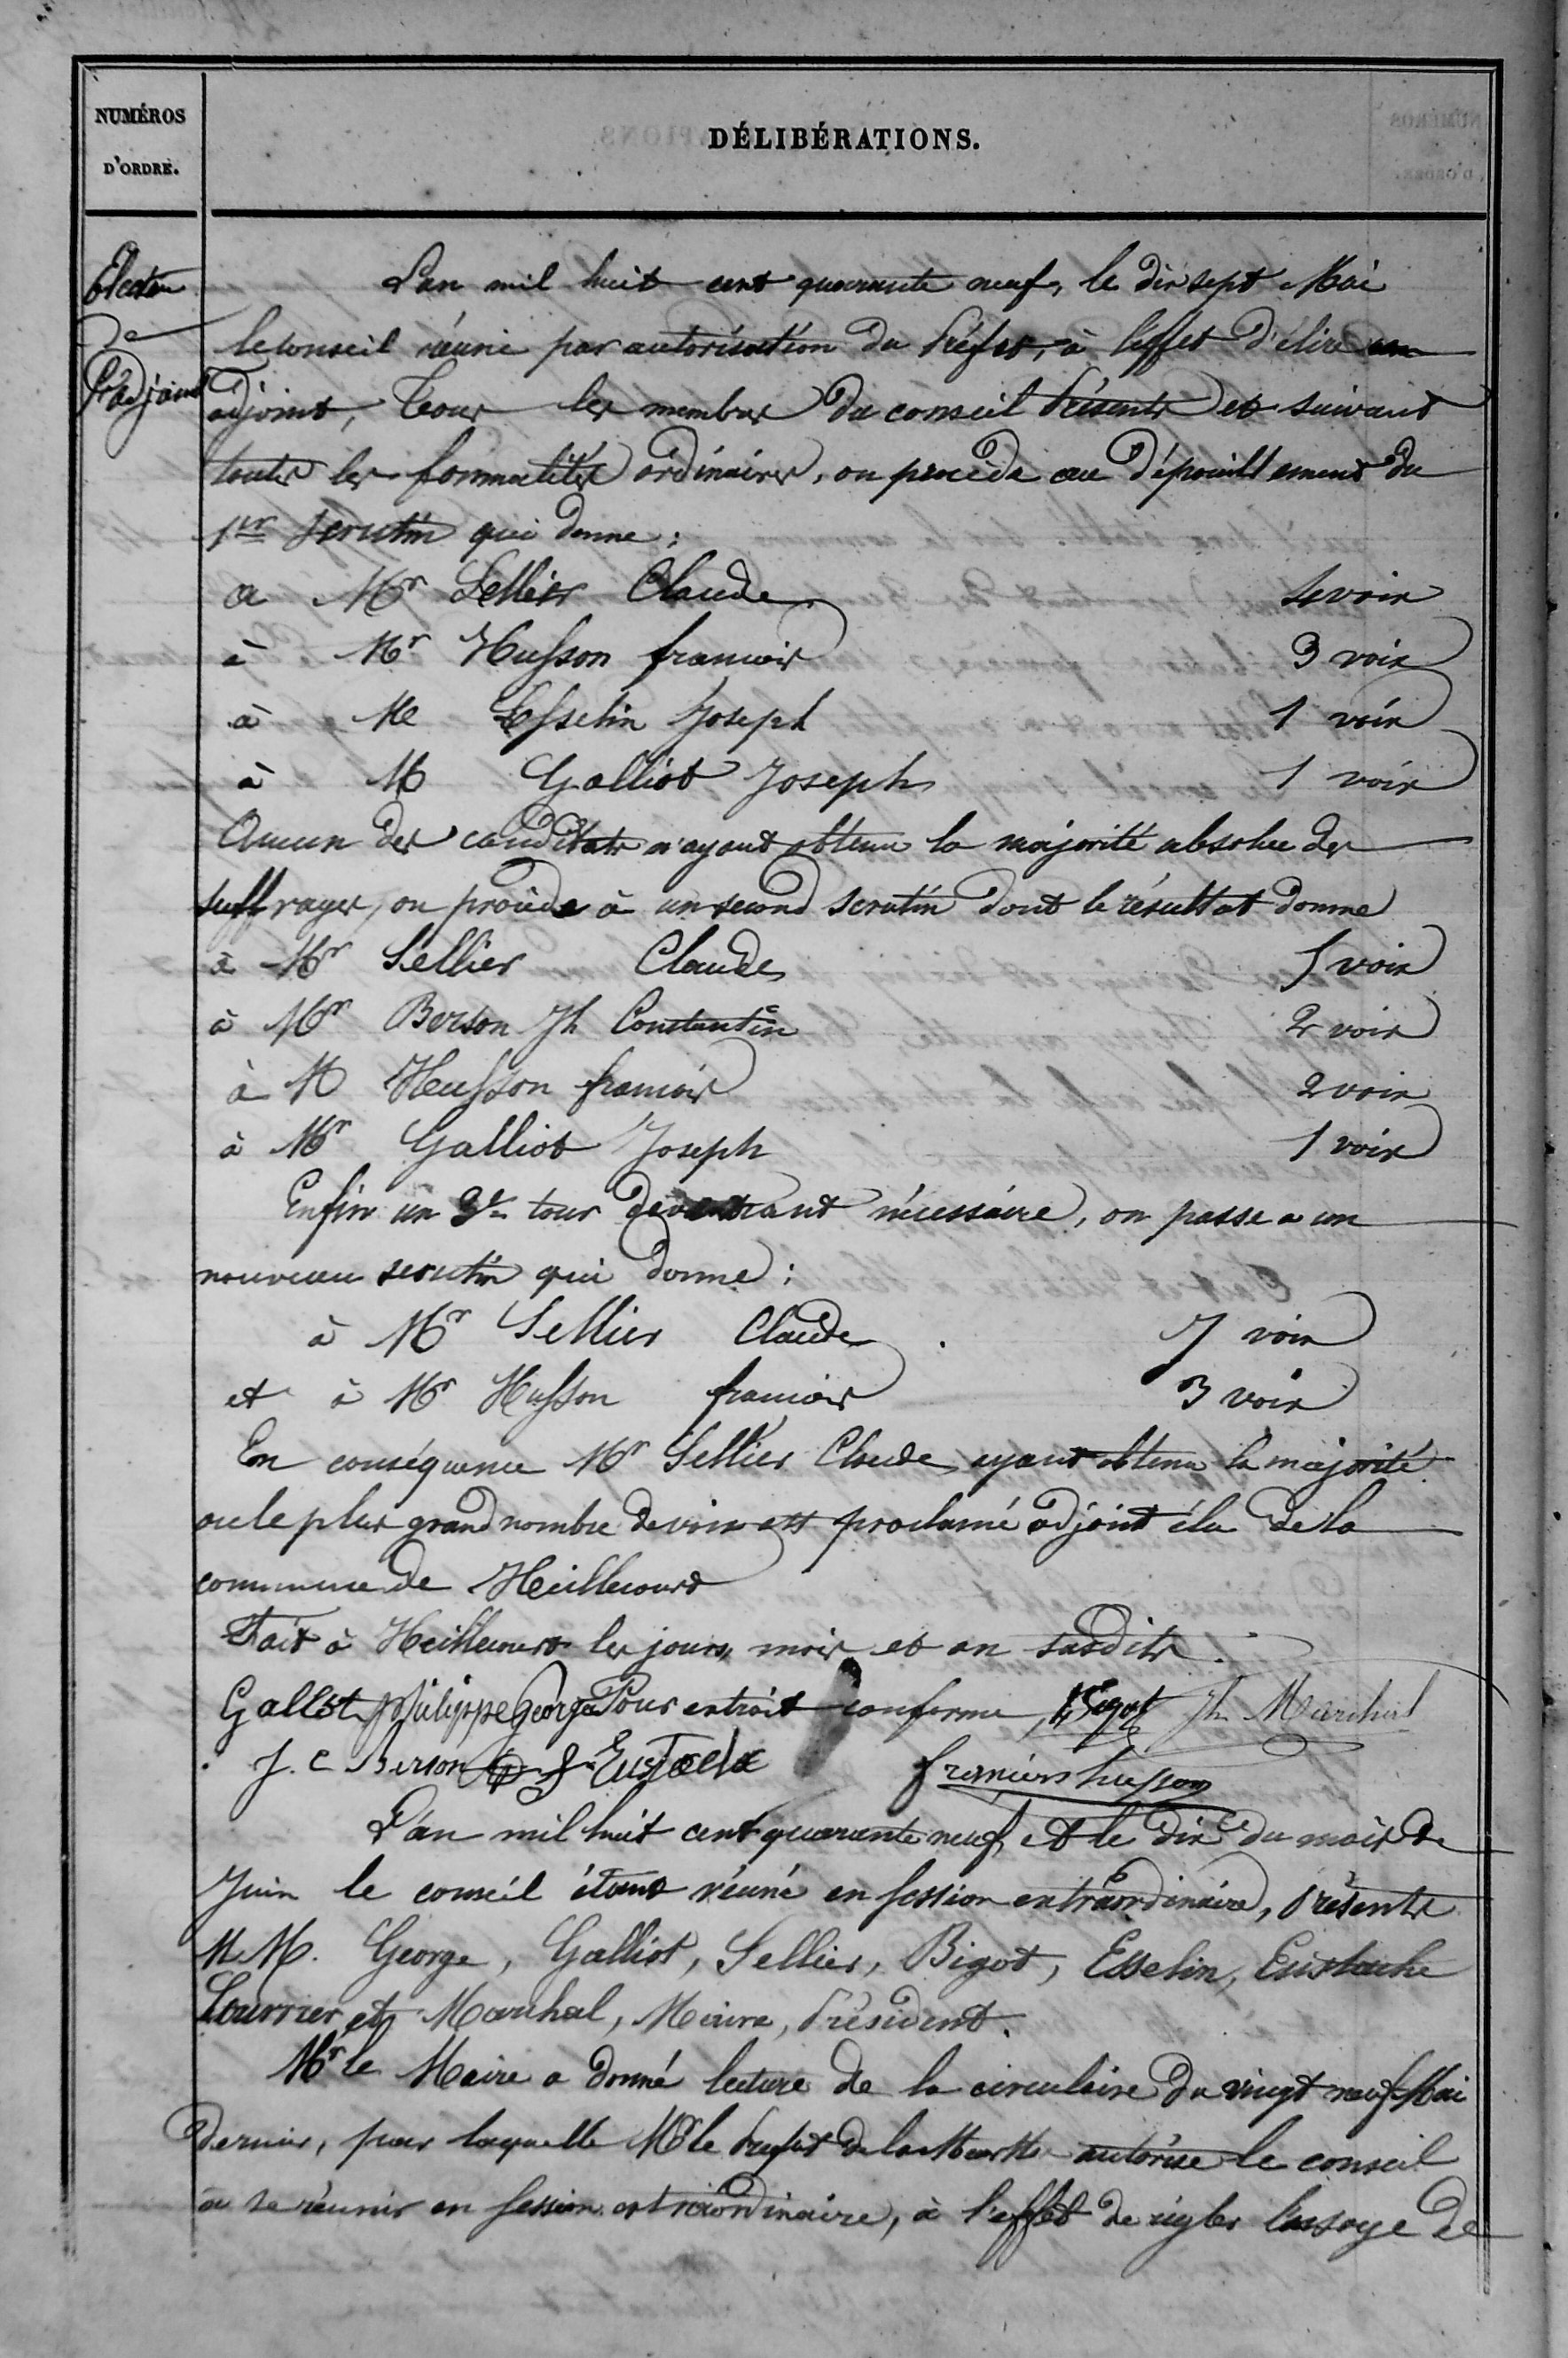 NUMÉROS
D'ORDRE.
DÉLIBÉRATIONS.
Election
de
l'adjoint
L'an mil huit cent quarante neuf, le dix sept Mai
le conseil réuni par autorisation du Préfet, à l'effet d'élire un
adjoint, Tous les membres du conseil Présents et suivant
toutes les formalités ordinaires, on procède au dépouillement du
1er scrutin qui donne :
a Mr Sellier Claude 4 voix
à Mr Husson francois 3 voix
à M Esselin Joseph 1 voix
à M Galliot Joseph 1 voix
Aucun des candidats n'ayant obtenu la majorité absolue des
suffrages, on procède à un second scrutin dont le résultat donne
à Mr Sellier Claude 5 voix
à Mr Berson Jh Constantin 2 voix
à M Husson francois 2 voix
à Mr Galliot Joseph 1 voix
Enfin un 3e tour devenant nécessaire, on passe a un
nouveau scrutin qui donne :
à Mr Sellier Claude . 7 voix
et à Mr Husson francois 3 voix
En conséquence Mr Sellier Claude, ayant obtenu la majorité
ou le plus grand nombre de voix est proclamé adjoint élu de la
commune de Heillecourt
Fait à Heillecourt les jours, mois et an susdits.
Galliot Philippe George Pour extrait conforme, Bigot Jh Marchal
J. C Berson Eustache francois husson
L'an mil huit cent quarante neuf, et le dix du mois de
Juin le conseil étant réuni en session extraordinaire, Présents
MM. George, Galliot, Sellier, Bigot, Esselin, Eustache
et Marchal, Maire, Président.
Mr le Maire a donné lecture de la circulaire du vingt neuf Mai
dernier, par laquelle Mr le Prefet de la Meurthe autorise le conseil
a se réunir en session extraordinaire, à l'effet de régler l'usage de